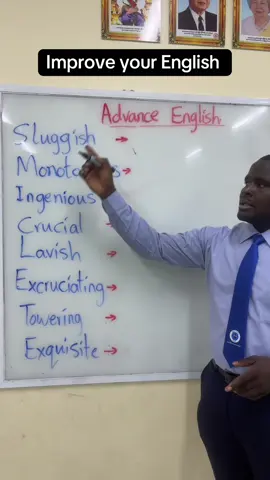 Improve your English
Advance English
Sluggish →
→
Ingenious
Crucial →
Lavish →
Excruciating →
Towering →
Exquisite →